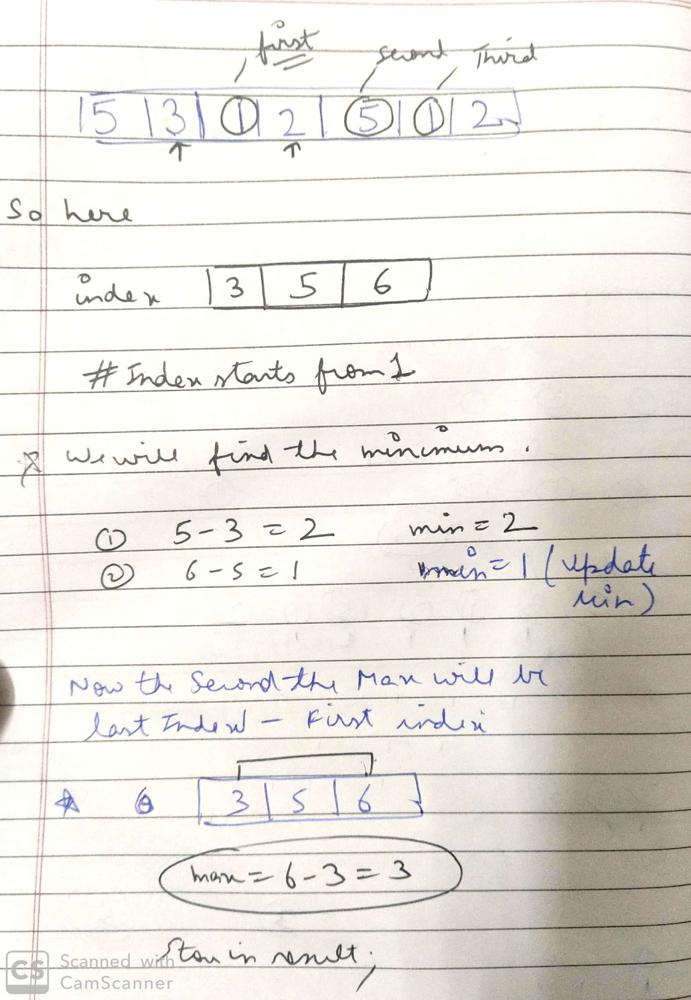 first second Third
5 3 1 2 5 1 2
So here
index 3 5 6
# Index starts from 1
We will find the minimum.
① 5-3 = 2 min = 2
② 6-5 = 1 min = 1 (update
min)
Now the Second the Max will be
last Index - First index
3 5 6
max = 6-3 = 3
Store in result;
CS Scanned with
CamScanner